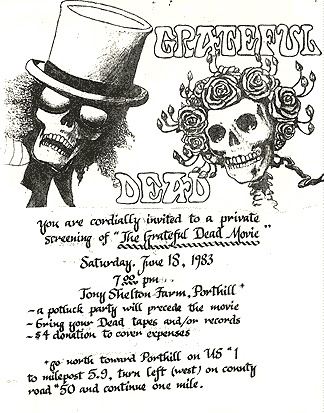 GRATEFUL
DEAD
you are cordially invited to a private
screening of "The Grateful Dead Movie"
Saturday, June 18, 1983
7:00 pm
Tony Shelton Farm, Porthill *
- a potluck party will precede the movie
- bring your Dead tapes and/or records
- $4 donation to cover expenses
* go north toward Porthill on US #1
to milepost 5.9, turn left (west) on county
road #50 and continue one mile.